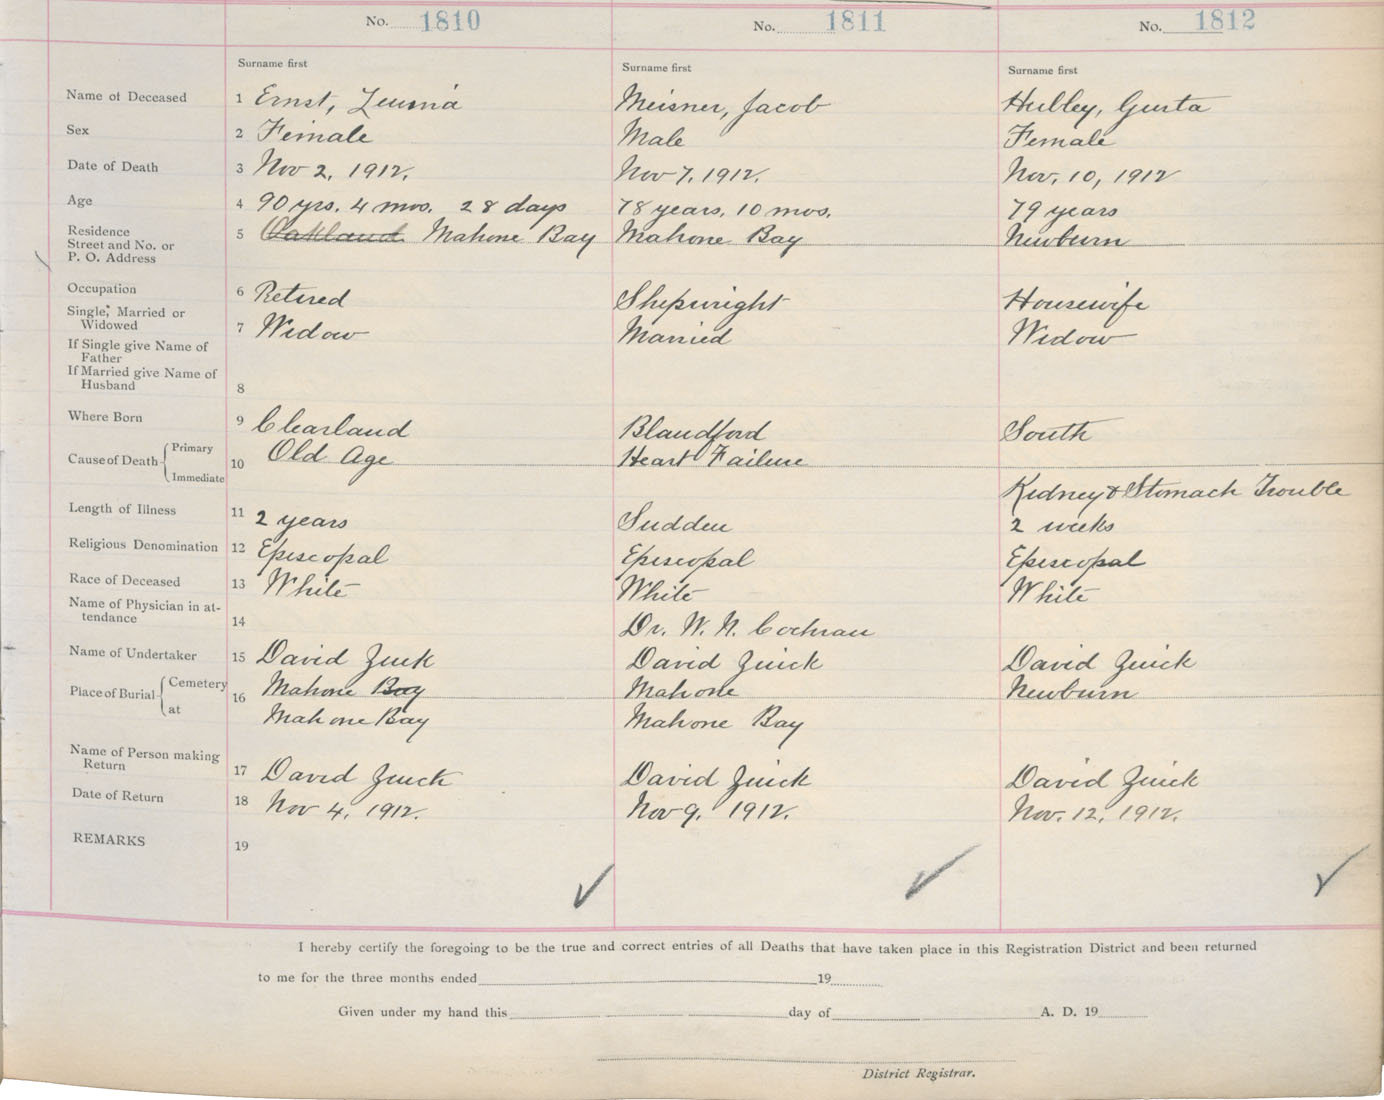 No. 1810 No. 1811 No. 1812
Surname first Surname first Surname first
Name of Deceased 1 Ernst, Meisner, Jacob Hubley, Gusta
Sex 2 Female Male Female
Date of Death 3 Nov 2, 1912. Nov 7, 1912. Nov. 10, 1912
Age 4 90 yrs. 4 mos. 28 days 78 years. 10 mos. 79 years
Residence
Street and No. or 5 Oakland Mahone Bay Mahone Bay Newburn
P. O. Address
Occupation 6 Retired Shipwright Housewife
Single, Married or
Widowed 7 Widow Married Widow
If Single give Name of
Father
If Married give Name of
Husband 8
Where Born 9 Clearland Blandford South
Cause of Death Primary 10 Old Age Heart Failure
Immediate Kidney & Stomach Trouble
Length of Illness 11 2 years Sudden 2 weeks
Religious Denomination 12 Episcopal Episcopal Episcopal
Race of Deceased 13 White White White
Name of Physician in at-
tendance 14 Dr. W. N. Cochran
Name of Undertaker 15 David Zuick David Zuick David Zuick
Place of Burial Cemetery 16 Mahone Bay Mahone Newburn
at Mahone Bay Mahone Bay
Name of Person making
Return 17 David Zuick David Zuick David Zuick
Date of Return 18 Nov 4, 1912. Nov 9, 1912. Nov. 12, 1912.
REMARKS 19
I hereby certify the foregoing to be the true and correct entries of all Deaths that have taken place in this Registration District and been returned
to me for the three months ended 19
Given under my hand this day of A. D. 19
District Registrar.